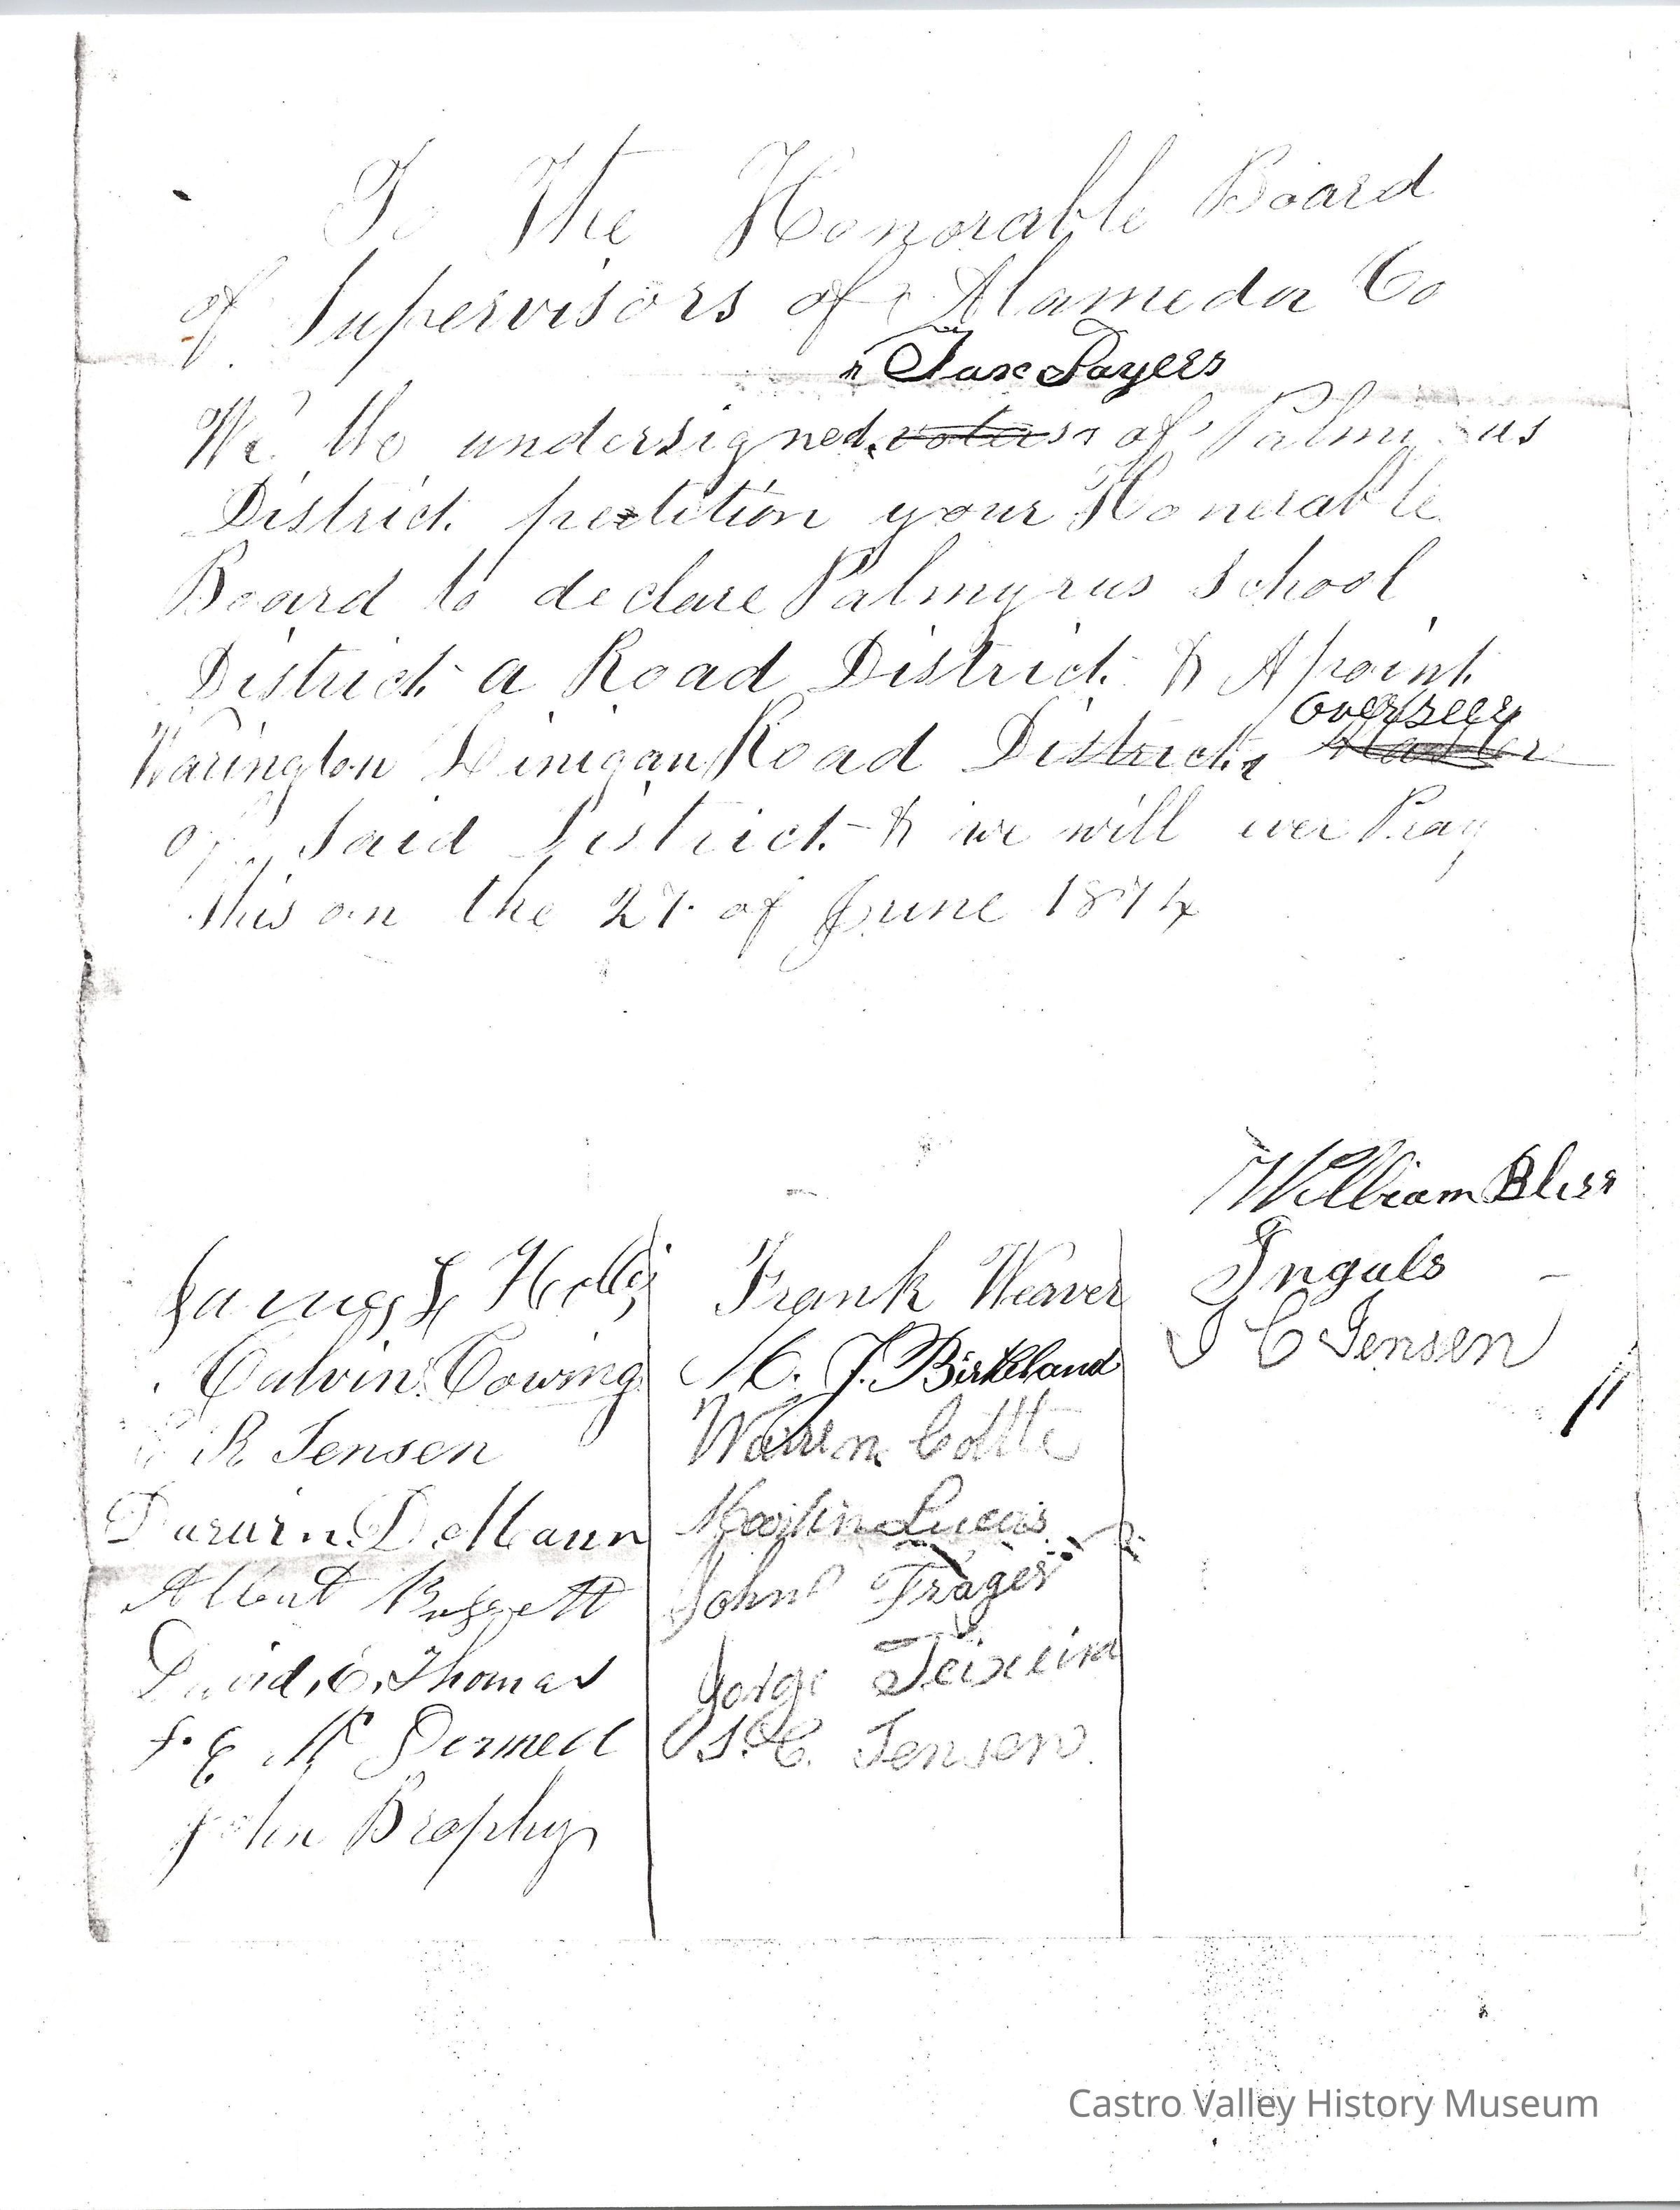 To The Honorable Board
of Supervisors of Alameda Co
Tax Payers
We the undersigned voters of Palmyrus
District petition your Honerable
Board to declare Palmyrus School
District a Road District & Apoint
overseer
Warington Linigan Road District Master
of Said District & we will ever Pray
this on the 27 of June 1874
William Bliss
James L Holly
Frank Weaver
Inguls
Calvin Cowing
J. Birkland
J C Jensen
R Jensen
Warren Cottle
Darwin DeMann
Martin Lucas
Albert
John Frager
David, E, Thomas
Jorge Teixeira
Mc Dermed
S. C. Jensen
John Brophy
Castro Valley History Museum